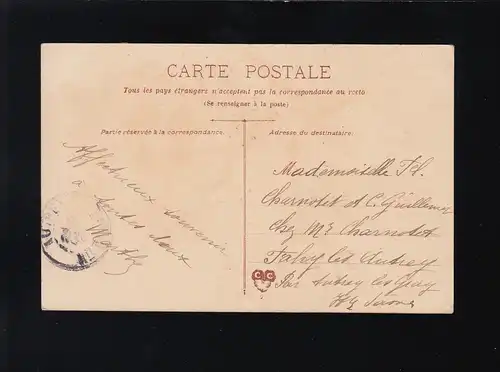 CARTE POSTALE
Tous les pays étrangers n'acceptent pas la correspondance au recto
(Se renseigner à la poste)
Partie réservée à la correspondance.
Adresse du destinataire:
Affectueux souvenir
à toutes deux
Marthe
Mademoiselle
Charnotet et C. Guillemin
chez Mr Charnotet
Fahy les Autrey
Par Autrey les Gray
Hte Saône
C C